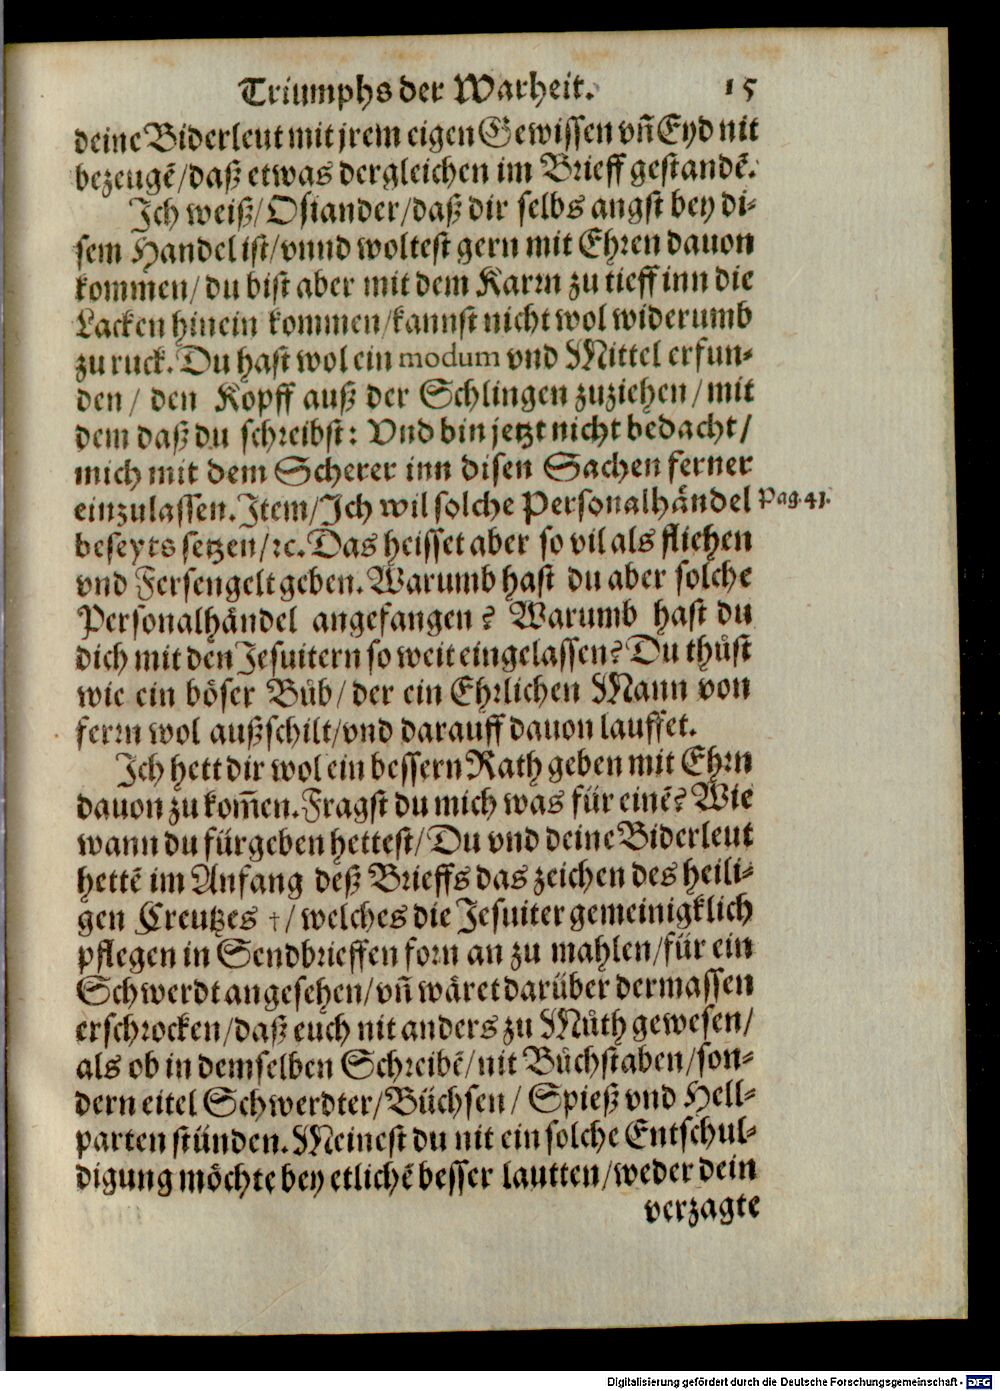 Triumphs der Warheit. 15
deine Biderleut mit jrem eigen Gewissen vñ Eyd nit
bezeugẽ/daß etwas dergleichen im Brieff gestandẽ.
Ich weiß/Osiander/daß dir selbs angst bey di-
sem Handel ist/vnnd woltest gern mit Ehren dauon
kommen/du bist aber mit dem Karrn zu tieff inn die
Lacken hinein kommen/kannst nicht wol widerumb
zu ruck. Du hast wol ein modum vnd Mittel erfun-
den/ den Kopff auß der Schlingen zuziehen/mit
dem daß du schreibst: Vnd bin jetzt nicht bedacht/
mich mit dem Scherer inn disen Sachen ferner
einzulassen. Item/Ich wil solche Personalhändel Pag 41.
beseyts setzen/ꝛc. Das heisset aber so vil als fliehen
vnd Fersengelt geben. Warumb hast du aber solche
Personalhändel angefangen? Warumb hast du
dich mit den Jesuitern so weit eingelassen? Du thůst
wie ein böser Bůb/der ein Ehrlichen Mann von
ferrn wol außschilt/vnd darauff dauon lauffet.
Ich hett dir wol ein bessern Rath geben mit Ehrn
dauon zu kom̃en. Fragst du mich was für einẽ? Wie
wann du fürgeben hettest/Du vnd deine Biderleut
hettẽ im Anfang deß Brieffs das zeichen des heili-
gen Creutzes †/welches die Jesuiter gemeinigklich
pflegen in Sendbrieffen forn an zu mahlen/für ein
Schwerdt angesehen/vñ wäret darüber dermassen
erschrocken/daß euch nit anders zu Můth gewesen/
als ob in demselben Schreibẽ/nit Bůchstaben/son-
dern eitel Schwerdter/Büchsen/ Spieß vnd Hell-
parten stünden. Meinest du nit ein solche Entschul-
digung möchte bey etlichẽ besser lautten/weder dein
verzagte
Digitalisierung gefördert durch die Deutsche Forschungsgemeinschaft - DFG